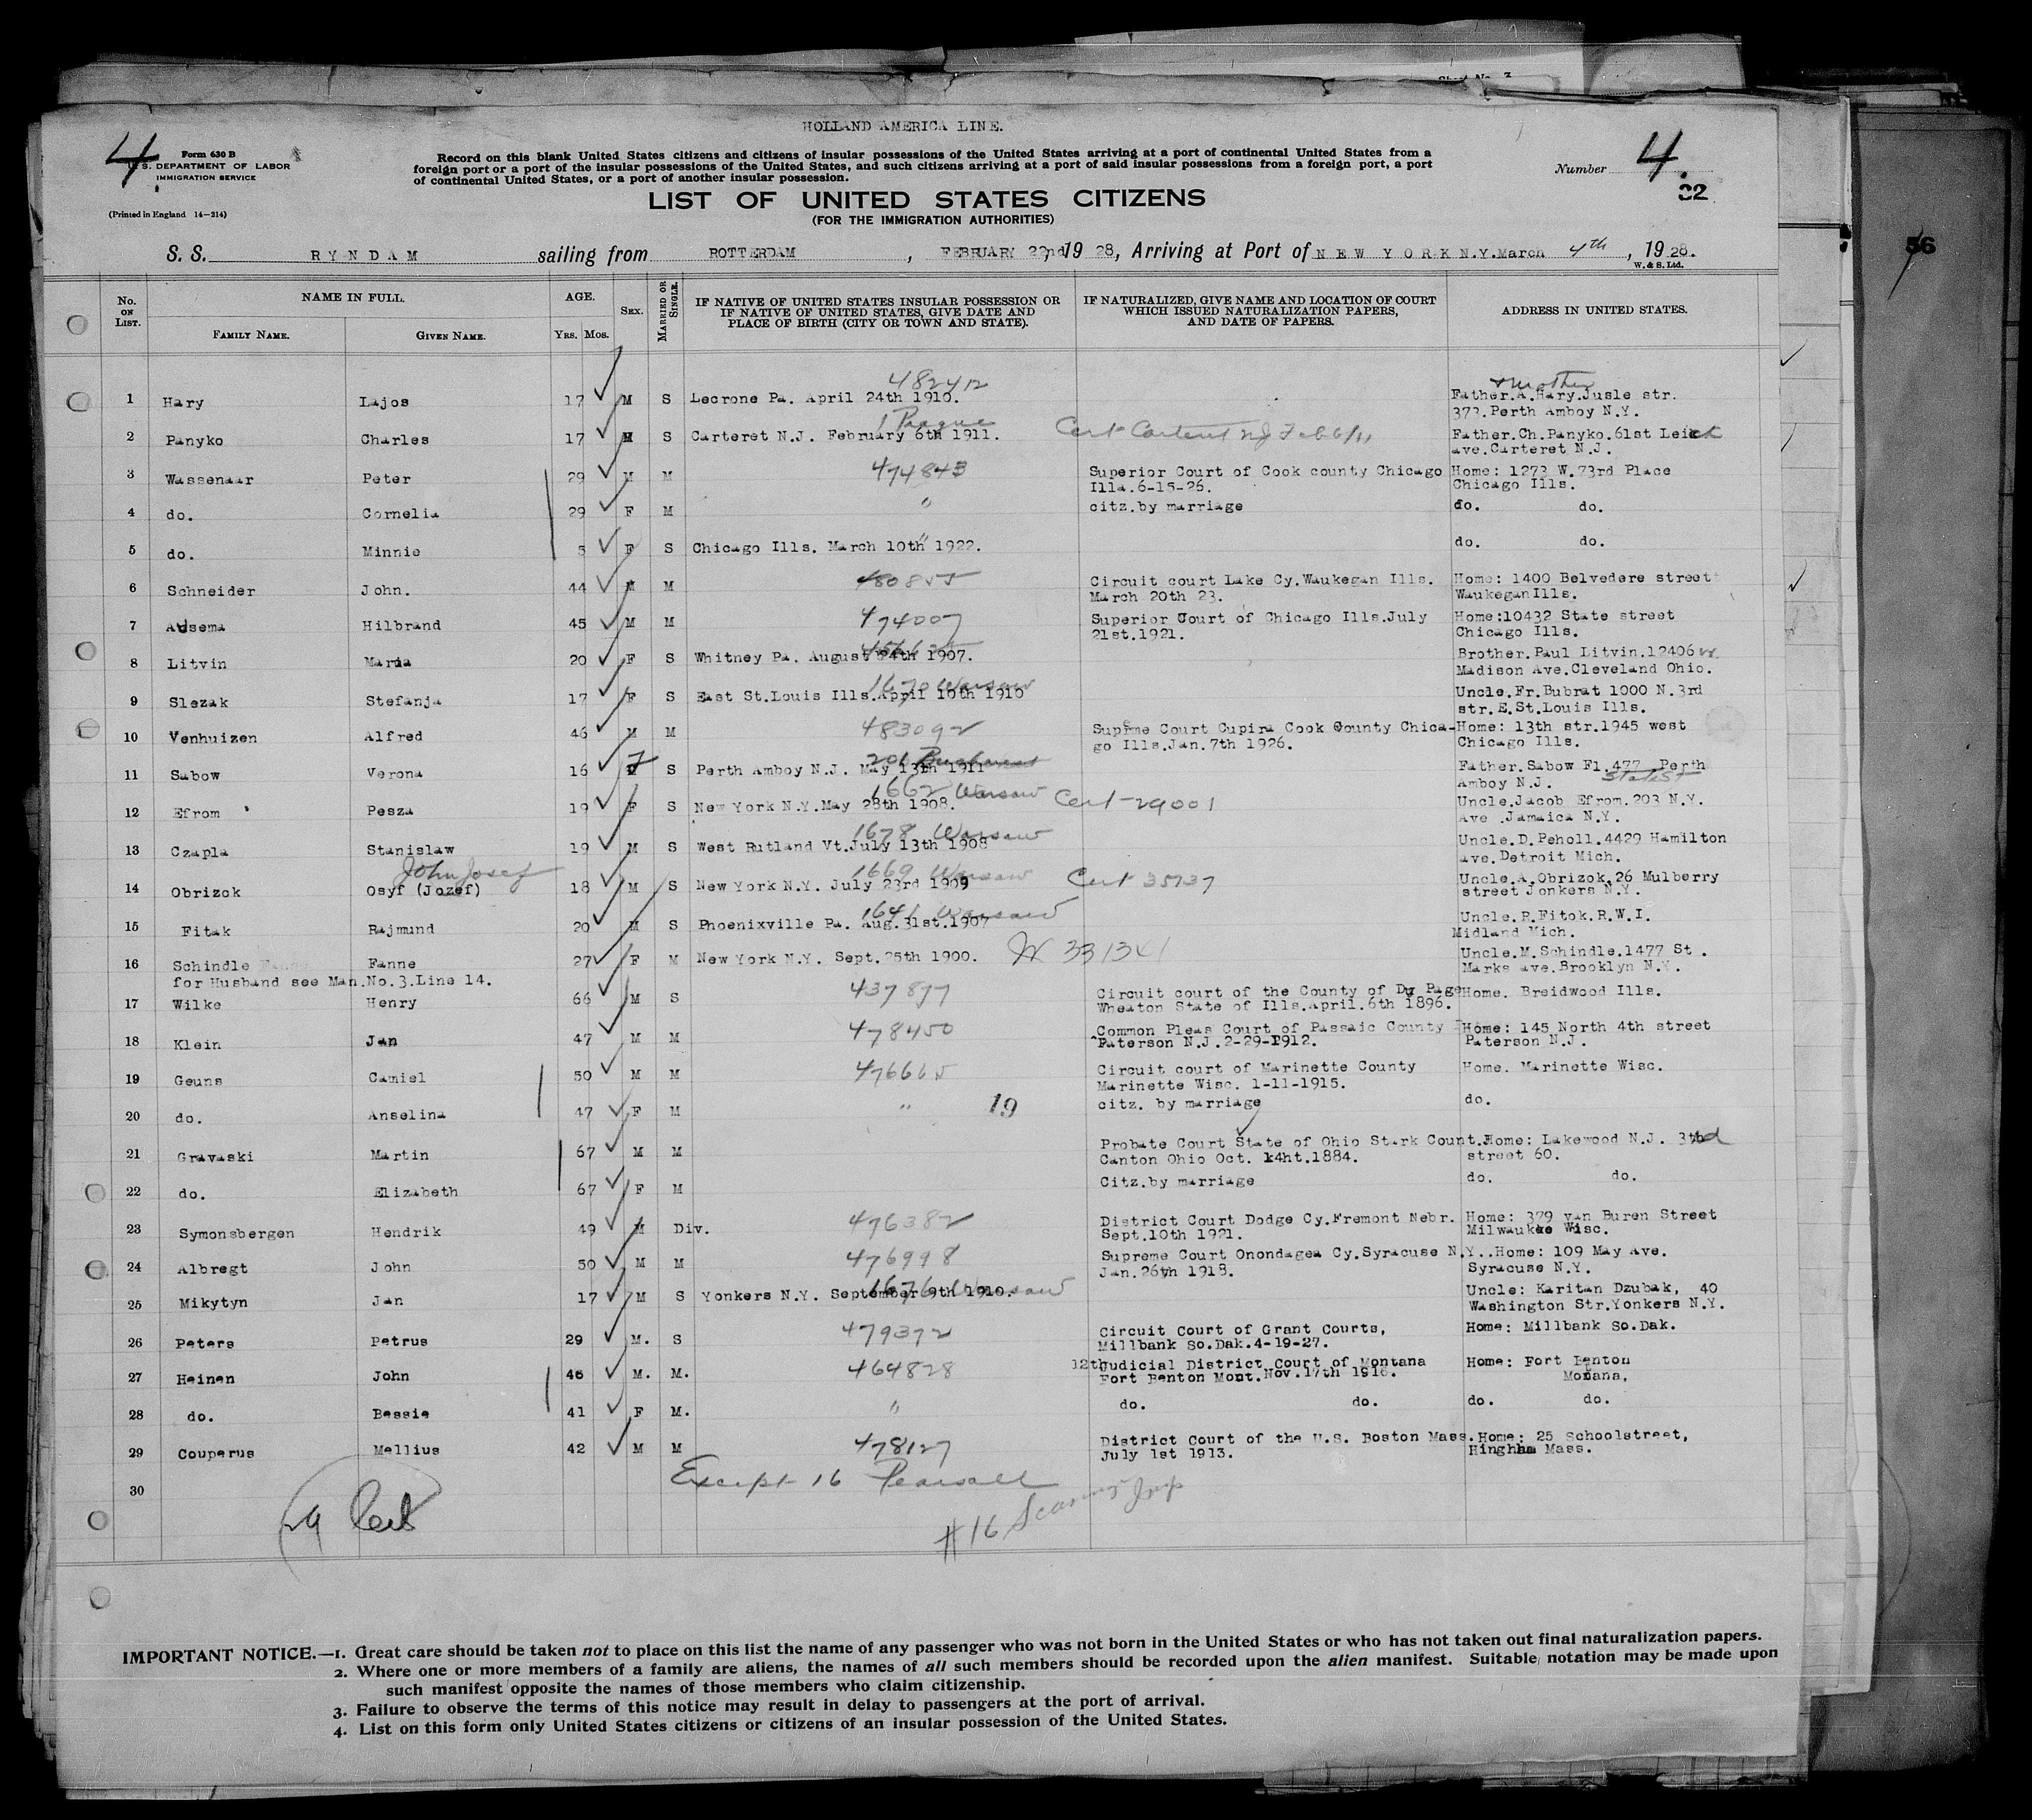 HOLLAND AMERICA LINE.
4.
Form 630 B
U.S. DEPARTMENT OF LABOR
IMMIGRATION SERVICE
(Printed in England 14—214)
Record on this blank United States citizens and citizens of insular possessions of the United States arriving at a port of continental United States from a
foreign port or a port of the insular possessions of the United States, and such citizens arriving at a port of said insular possessions from a foreign port, a port
of continental United States, or a port of another insular possession.
Number 4.
LIST OF UNITED STATES CITIZENS
(FOR THE IMMIGRATION AUTHORITIES)
56
S. S. RYNDAM sailing from ROTTERDAM, FEBRUARY 22nd 1928, Arriving at Port of NEW YORK N.Y. March 4th, 1928.
W. & S. Ltd.
No. ON LIST. NAME IN FULL. FAMILY NAME. GIVEN NAME. AGE. YRS. MOS. SEX. MARRIED OR SINGLE. IF NATIVE OF UNITED STATES INSULAR POSSESSION OR IF NATIVE OF UNITED STATES, GIVE DATE AND PLACE OF BIRTH (CITY OR TOWN AND STATE). IF NATURALIZED, GIVE NAME AND LOCATION OF COURT WHICH ISSUED NATURALIZATION PAPERS, AND DATE OF PAPERS. ADDRESS IN UNITED STATES.
482412 & mother
1 Hary Lajos 17 M S Lecrone Pa. April 24th 1910. Father.A.Hary.Jusle str.
373.Perth Amboy N.Y.
1 Prague
2 Panyko Charles 17 M S Carteret N.J. February 6th 1911. Cert Carteret NJ Feb 6/11 Father.Ch.Panyko.61st Leick
ave.Carteret N.J.
3 Wassenaar Peter 29 M M 474843 Superior Court of Cook county Chicago Home: 1273 W.73rd Place
Illa.6-15-26. Chicago Ills.
4 do. Cornelia 29 F M " citz.by marriage do. do.
5 do. Minnie 5 F S Chicago Ills. March 10th 1922. " do. do.
6 Schneider John. 44 M M 480855 Circuit court Lake Cy.Waukegan Ills. Home: 1400 Belvedere street
March 20th 23. Waukegan Ills.
7 Adsema Hilbrand 45 M M 474007 Superior Court of Chicago Ills.July Home:10432 State street
21st.1921. Chicago Ills.
8 Litvin Maria 20 F S Whitney Pa. August 24th 1907. Brother.Paul Litvin.12406
Madison Ave.Cleveland Ohio.
1670 Warsaw
9 Slezak Stefanja 17 F S East St.Louis Ills.April 10th 1910 Uncle.Fr.Bubrat 1000 N.3rd
str.E.St.Louis Ills.
10 Venhuizen Alfred 46 M M 483092 Supreme Court Cupira Cook County Chica- Home: 13th str.1945 west
go Ills.Jan.7th 1926. Chicago Ills.
201 Bucharest
11 Sabow Verona 16 F S Perth Amboy N.J. May 13th 1911 Father.Sabow Fl.477 Perth
Amboy N.J. State St
1662 Warsaw
12 Efrom Pesza 19 F S New York N.Y.May 28th 1908. Cert-29001 Uncle.Jacob Efrom.203 N.Y.
Ave .Jamaica N.Y.
1678 Warsaw
13 Czapla Stanislaw 19 M S West Rutland Vt.July 13th 1908 Uncle.D.Peholl.4429 Hamilton
ave.Detroit Mich.
John Josef 1669 Warsaw
14 Obrizok Osyf (Jozef) 18 M S New York N.Y. July 23rd 1909 Cert 35737 Uncle.A.Obrizok.26 Mulberry
street Jonkers N.Y.
1641 Warsaw
15 Fitak Rajmund 20 M S Phoenixville Pa. Aug.31st.1907 Uncle.R.Fitok.R.W.I.
Midland Mich.
16 Schindle Fanne 27 F M New York N.Y. Sept.25th 1900. 331341 Uncle.M.Schindle.1477 St.
for Husband see Man.No.3.Line 14. Marks ave.Brooklyn N.Y.
17 Wilke Henry 66 M S 437877 Circuit court of the County of Du Page Home. Breidwood Ills.
Wheaton State of Ills.April.6th 1896.
18 Klein Jan 47 M M 478450 Common Pleas Court of Passaic County Home: 145 North 4th street
Paterson N.J.2-29-1912. Paterson N.J.
19 Geuns Camiel 50 M M 476665 Circuit court of Marinette County Home. Marinette Wisc.
Marinette Wisc. 1-11-1915.
20 do. Anselina 47 F M " 19 citz. by marriage do.
21 Gravaski Martin 67 M M Probate Court State of Ohio Stark Count. Home: Lakewood N.J. 3rd
Canton Ohio Oct. 14ht.1884. street 60.
22 do. Elizabeth 67 F M Citz.by marriage do. do.
23 Symonsbergen Hendrik 49 M Div. 476382 District Court Dodge Cy.Fremont Nebr. Home: 379 van Buren Street
Sept.10th 1921. Milwaukee Wisc.
24 Albregt John 50 M M 476998 Supreme Court Onondagea Cy.Syracuse N.Y..Home: 109 May Ave.
Jan.26th 1918. Syracuse N.Y.
1676 Warsaw
25 Mikytyn Jan 17 M S Yonkers N.Y. September 9th 1910. Uncle: Karitan Dzubak, 40
Washington Str.Yonkers N.Y.
26 Peters Petrus 29 M. S 479372 Circuit Court of Grant Courts, Home: Millbank So.Dak.
Millbank So.Dak.4-19-27.
27 Heinen John 46 M. M. 464828 12th Judicial District Court of Montana Home: Fort Benton
Fort Benton Mont.Nov.17th 1916. Monana.
28 do. Bessie 41 F M. " do. do. do. do.
29 Couperus Mellius 42 M M 478127 District Court of the U.S. Boston Mass. Home: 25 Schoolstreet,
July 1st 1913. Hingham Mass.
Except 16 Pearsall
30
#16
IMPORTANT NOTICE.—1. Great care should be taken not to place on this list the name of any passenger who was not born in the United States or who has not taken out final naturalization papers.
2. Where one or more members of a family are aliens, the names of all such members should be recorded upon the alien manifest. Suitable notation may be made upon
such manifest opposite the names of those members who claim citizenship.
3. Failure to observe the terms of this notice may result in delay to passengers at the port of arrival.
4. List on this form only United States citizens or citizens of an insular possession of the United States.